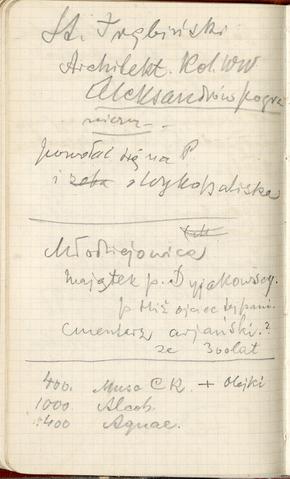 St. Trębiński
Architekt. Kol. WW
Aleksandrów pogra
niczny
powołać się na P
i wykopaliska
Młodziejowice
majątek p. Dyjakowscy.
p. ojciec tej pani.
Cmentarz arjański?
ze 300 lat
400. C R. + Olejki
1000 Alcoh.
400 Aquae.